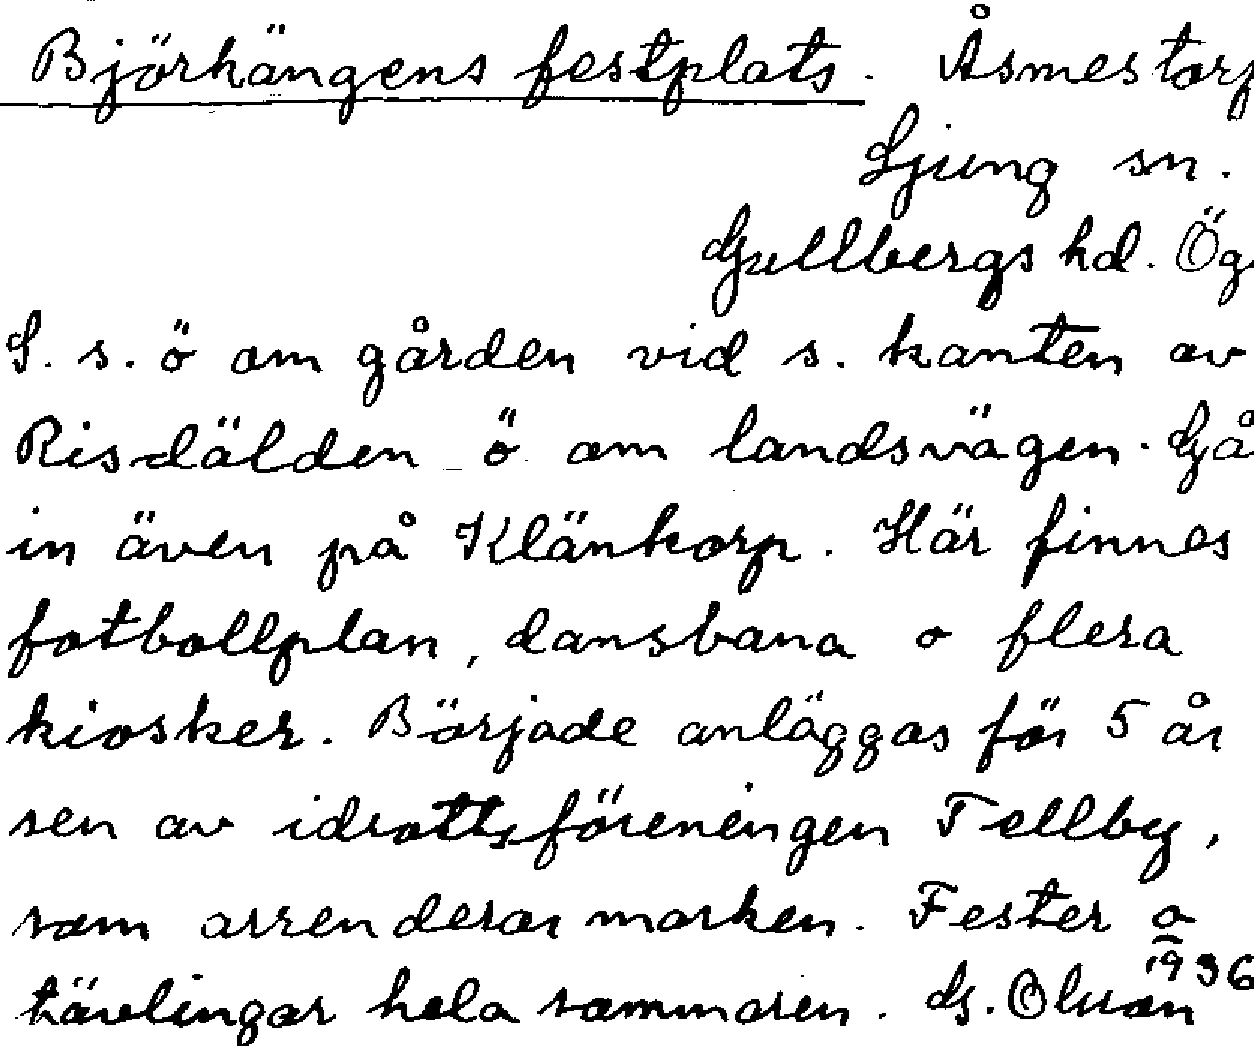 Björhängens festplats. Åsmestorp
Ljung sn.
Gullbergs hd. Ög.
L. s. ö om gården vid s. kanten av
Risdälden ö om landsvägen. Gå
in även på Klänkorp. Här finnes
fotbollplan, dansbana o flera
kiosker. Började anläggas för 5 år
sen av idrottsföreningen Tellby,
som arrenderar marken. Fester o
tävlingar hela sommaren. G. Olsson 1936